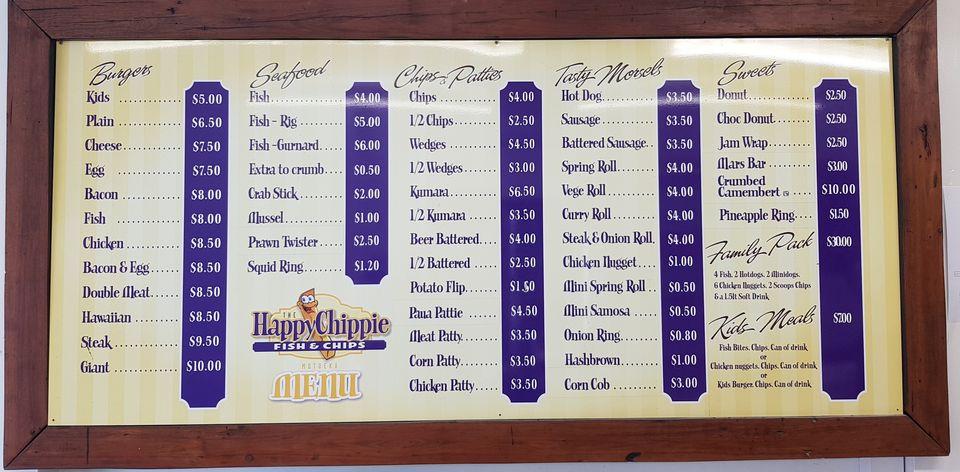 Burgers
Kids $5.00
Plain $6.50
Cheese $7.50
Egg $7.50
Bacon $8.00
Fish $8.00
Chicken $8.50
Bacon & Egg $8.50
Double Meat $8.50
Hawaiian $8.50
Steak $9.50
Giant $10.00
Seafood
Fish $4.00
Fish - Rig $5.00
Fish -Gurnard $6.00
Extra to crumb $0.50
Crab Stick $2.00
Mussel $1.00
Prawn Twister $2.50
Squid Ring $1.20
THE
HappyChippie
FISH & CHIPS
MOTUEKA
MENU
Chips & Patties
Chips $4.00
1/2 Chips $2.50
Wedges $4.50
1/2 Wedges $3.00
Kumara $6.50
1/2 Kumara $3.50
Beer Battered $4.00
1/2 Battered $2.50
Potato Flip $1.50
Paua Pattie $4.50
Meat Patty $3.50
Corn Patty $3.50
Chicken Patty $3.50
Tasty Morsels
Hot Dog $3.50
Sausage $3.50
Battered Sausage $3.50
Spring Roll $4.00
Vege Roll $4.00
Curry Roll $4.00
Steak & Onion Roll $4.00
Chicken Nugget $1.00
Mini Spring Roll $0.50
Mini Samosa $0.50
Onion Ring $0.80
Hashbrown $1.00
Corn Cob $3.00
Sweets
Donut $2.50
Choc Donut $2.50
Jam Wrap $2.50
Mars Bar $3.00
Crumbed
Camembert $10.00
Pineapple Ring $1.50
Family Pack $30.00
4 Fish. 2 Hotdogs. 2 Minidogs.
6 Chicken Nuggets. 2 Scoops Chips
& a 1.5lt Soft Drink
Kids Meals $7.00
Fish Bites. Chips. Can of drink
or
Chicken nuggets. Chips. Can of drink
or
Kids Burger. Chips. Can of drink